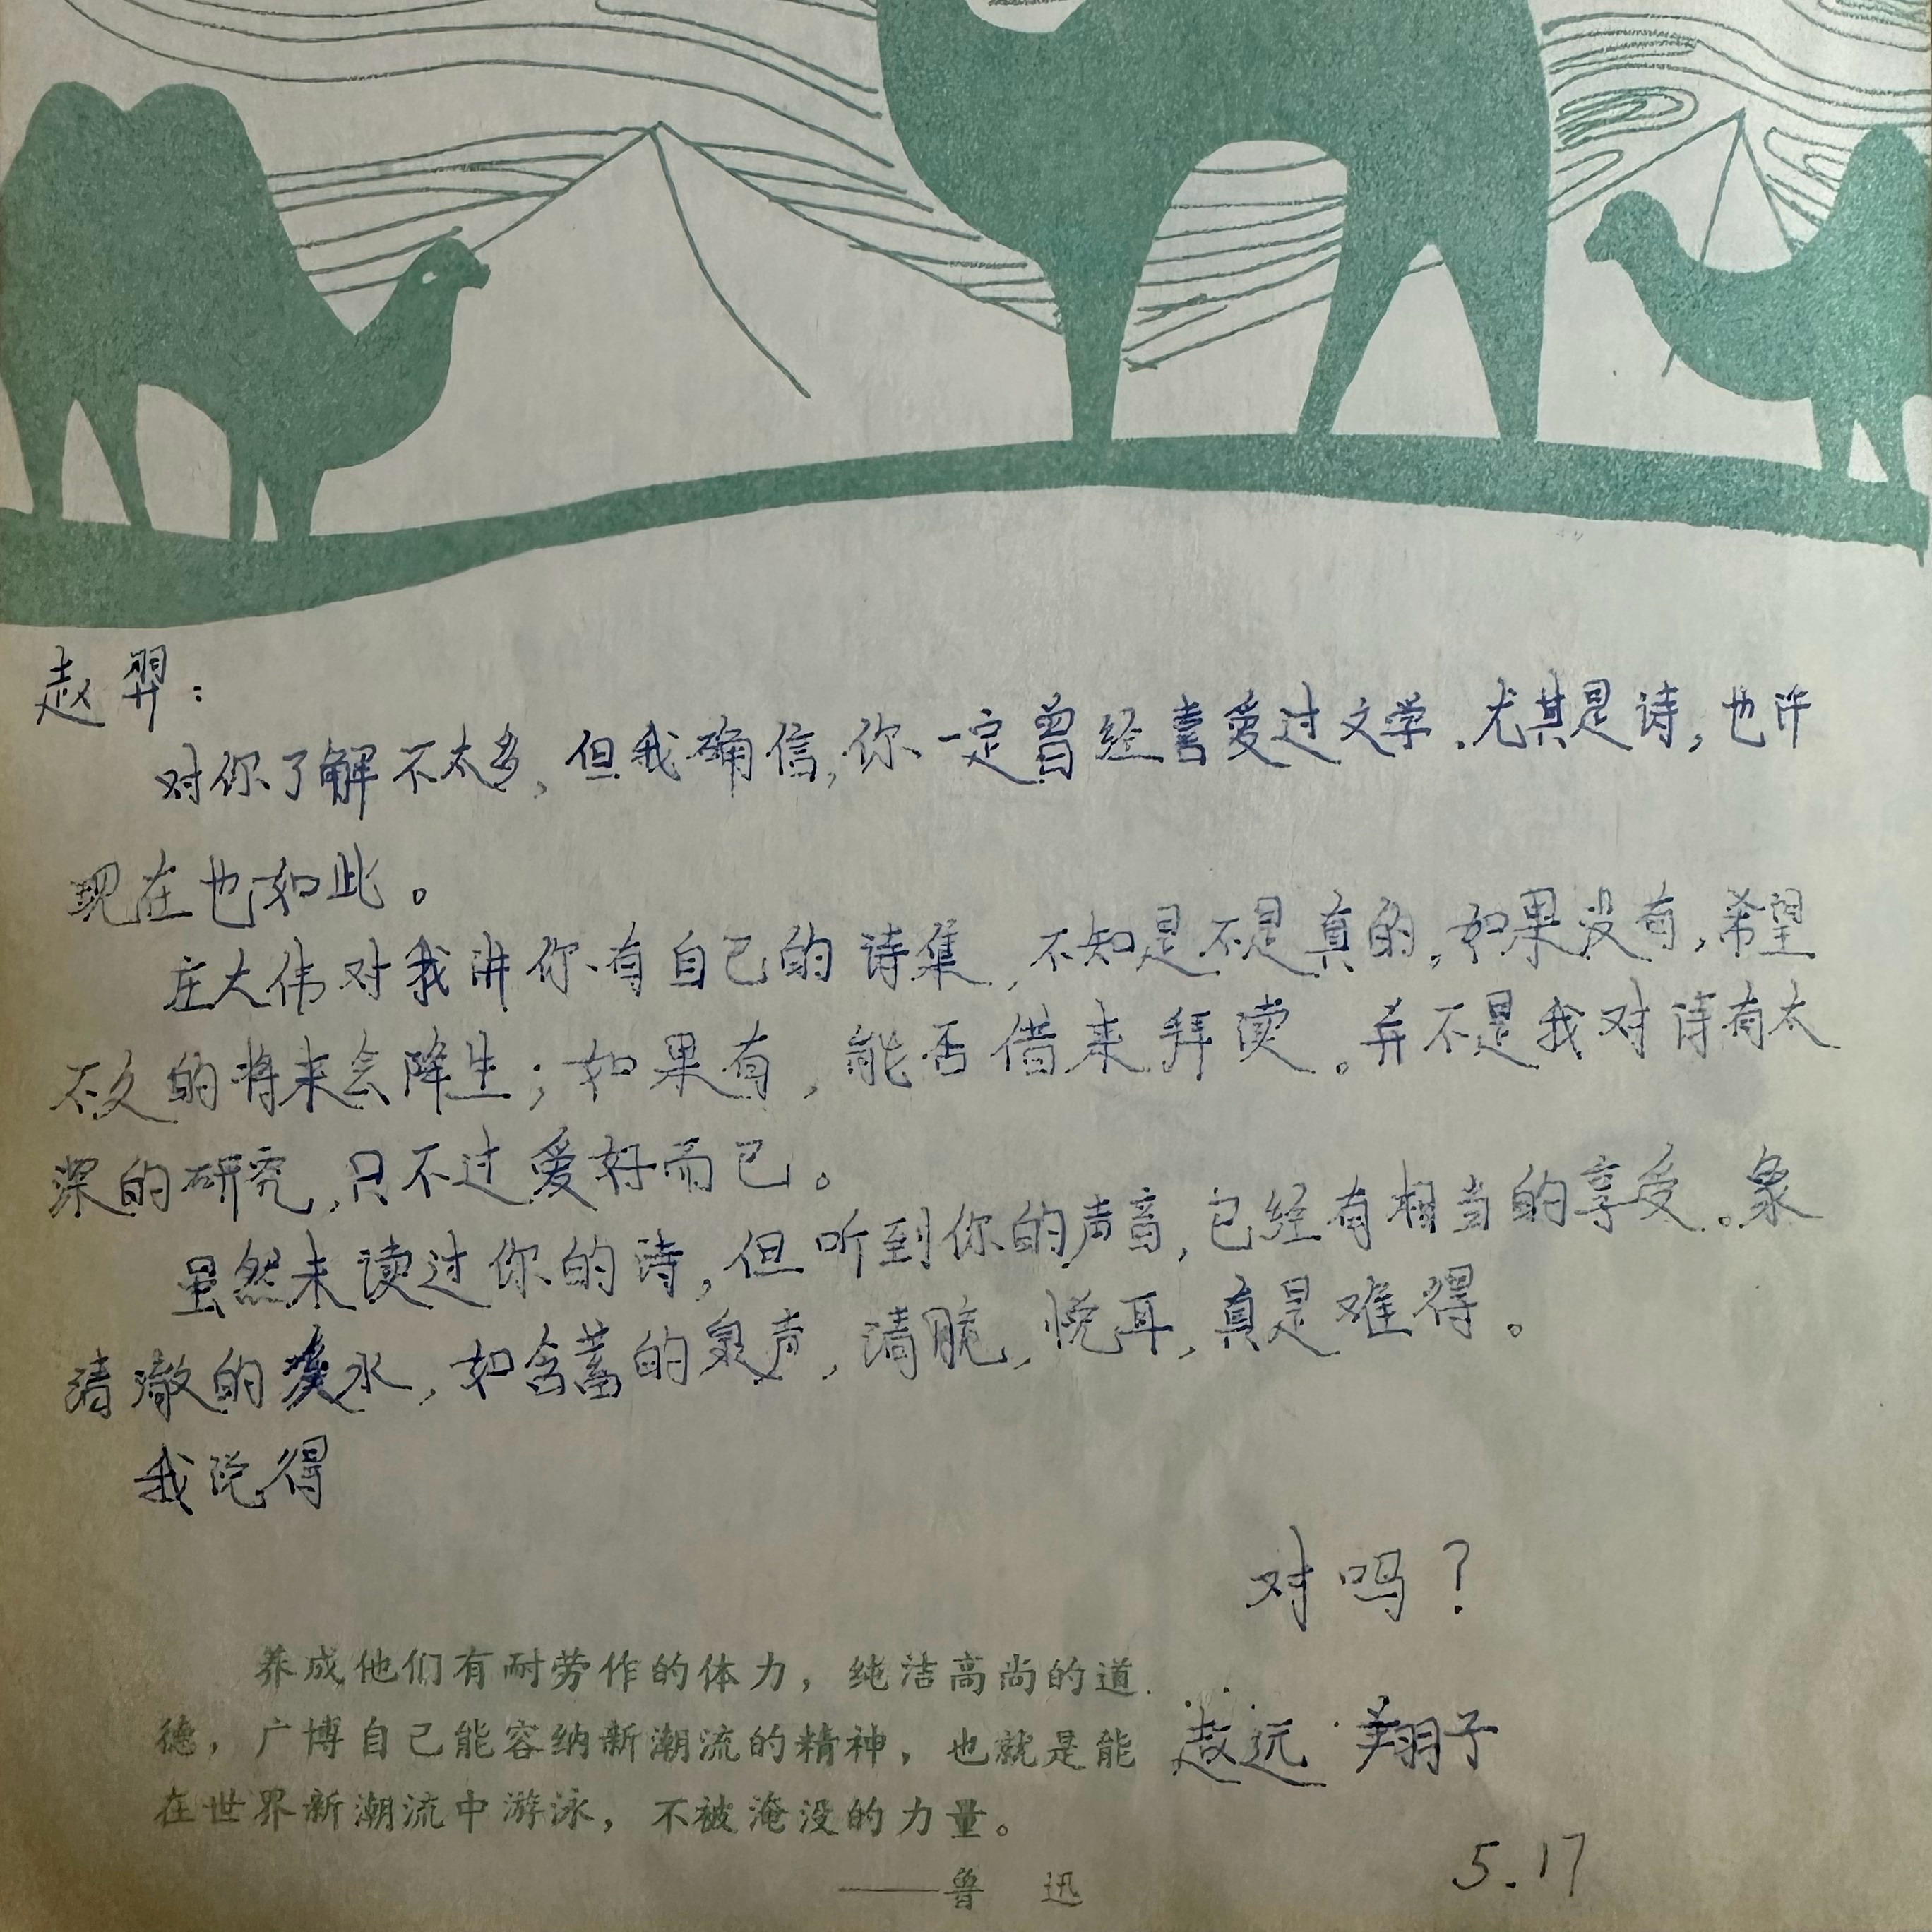 赵羿：
对你了解不太多，但我确信，你一定曾经喜爱过文学。尤其是诗，也许
现在也如此。
庄大伟对我讲你有自己的诗集，不知是不是真的。如果没有，希望
不久的将来会降生；如果有，能否借来拜读。并不是我对诗有太
深的研究，只不过爱好而已。
虽然未读过你的诗，但听到你的声音，已经有相当的享受。象
清澈的溪水，如含蓄的泉声，清脆，悦耳，真是难得。
我觉得
对吗？
养成他们有耐劳作的体力，纯洁高尚的道
德，广博自己能容纳新潮流的精神，也就是能
在世界新潮流中游泳，不被淹没的力量。
——鲁 迅
远 翔子
5.17